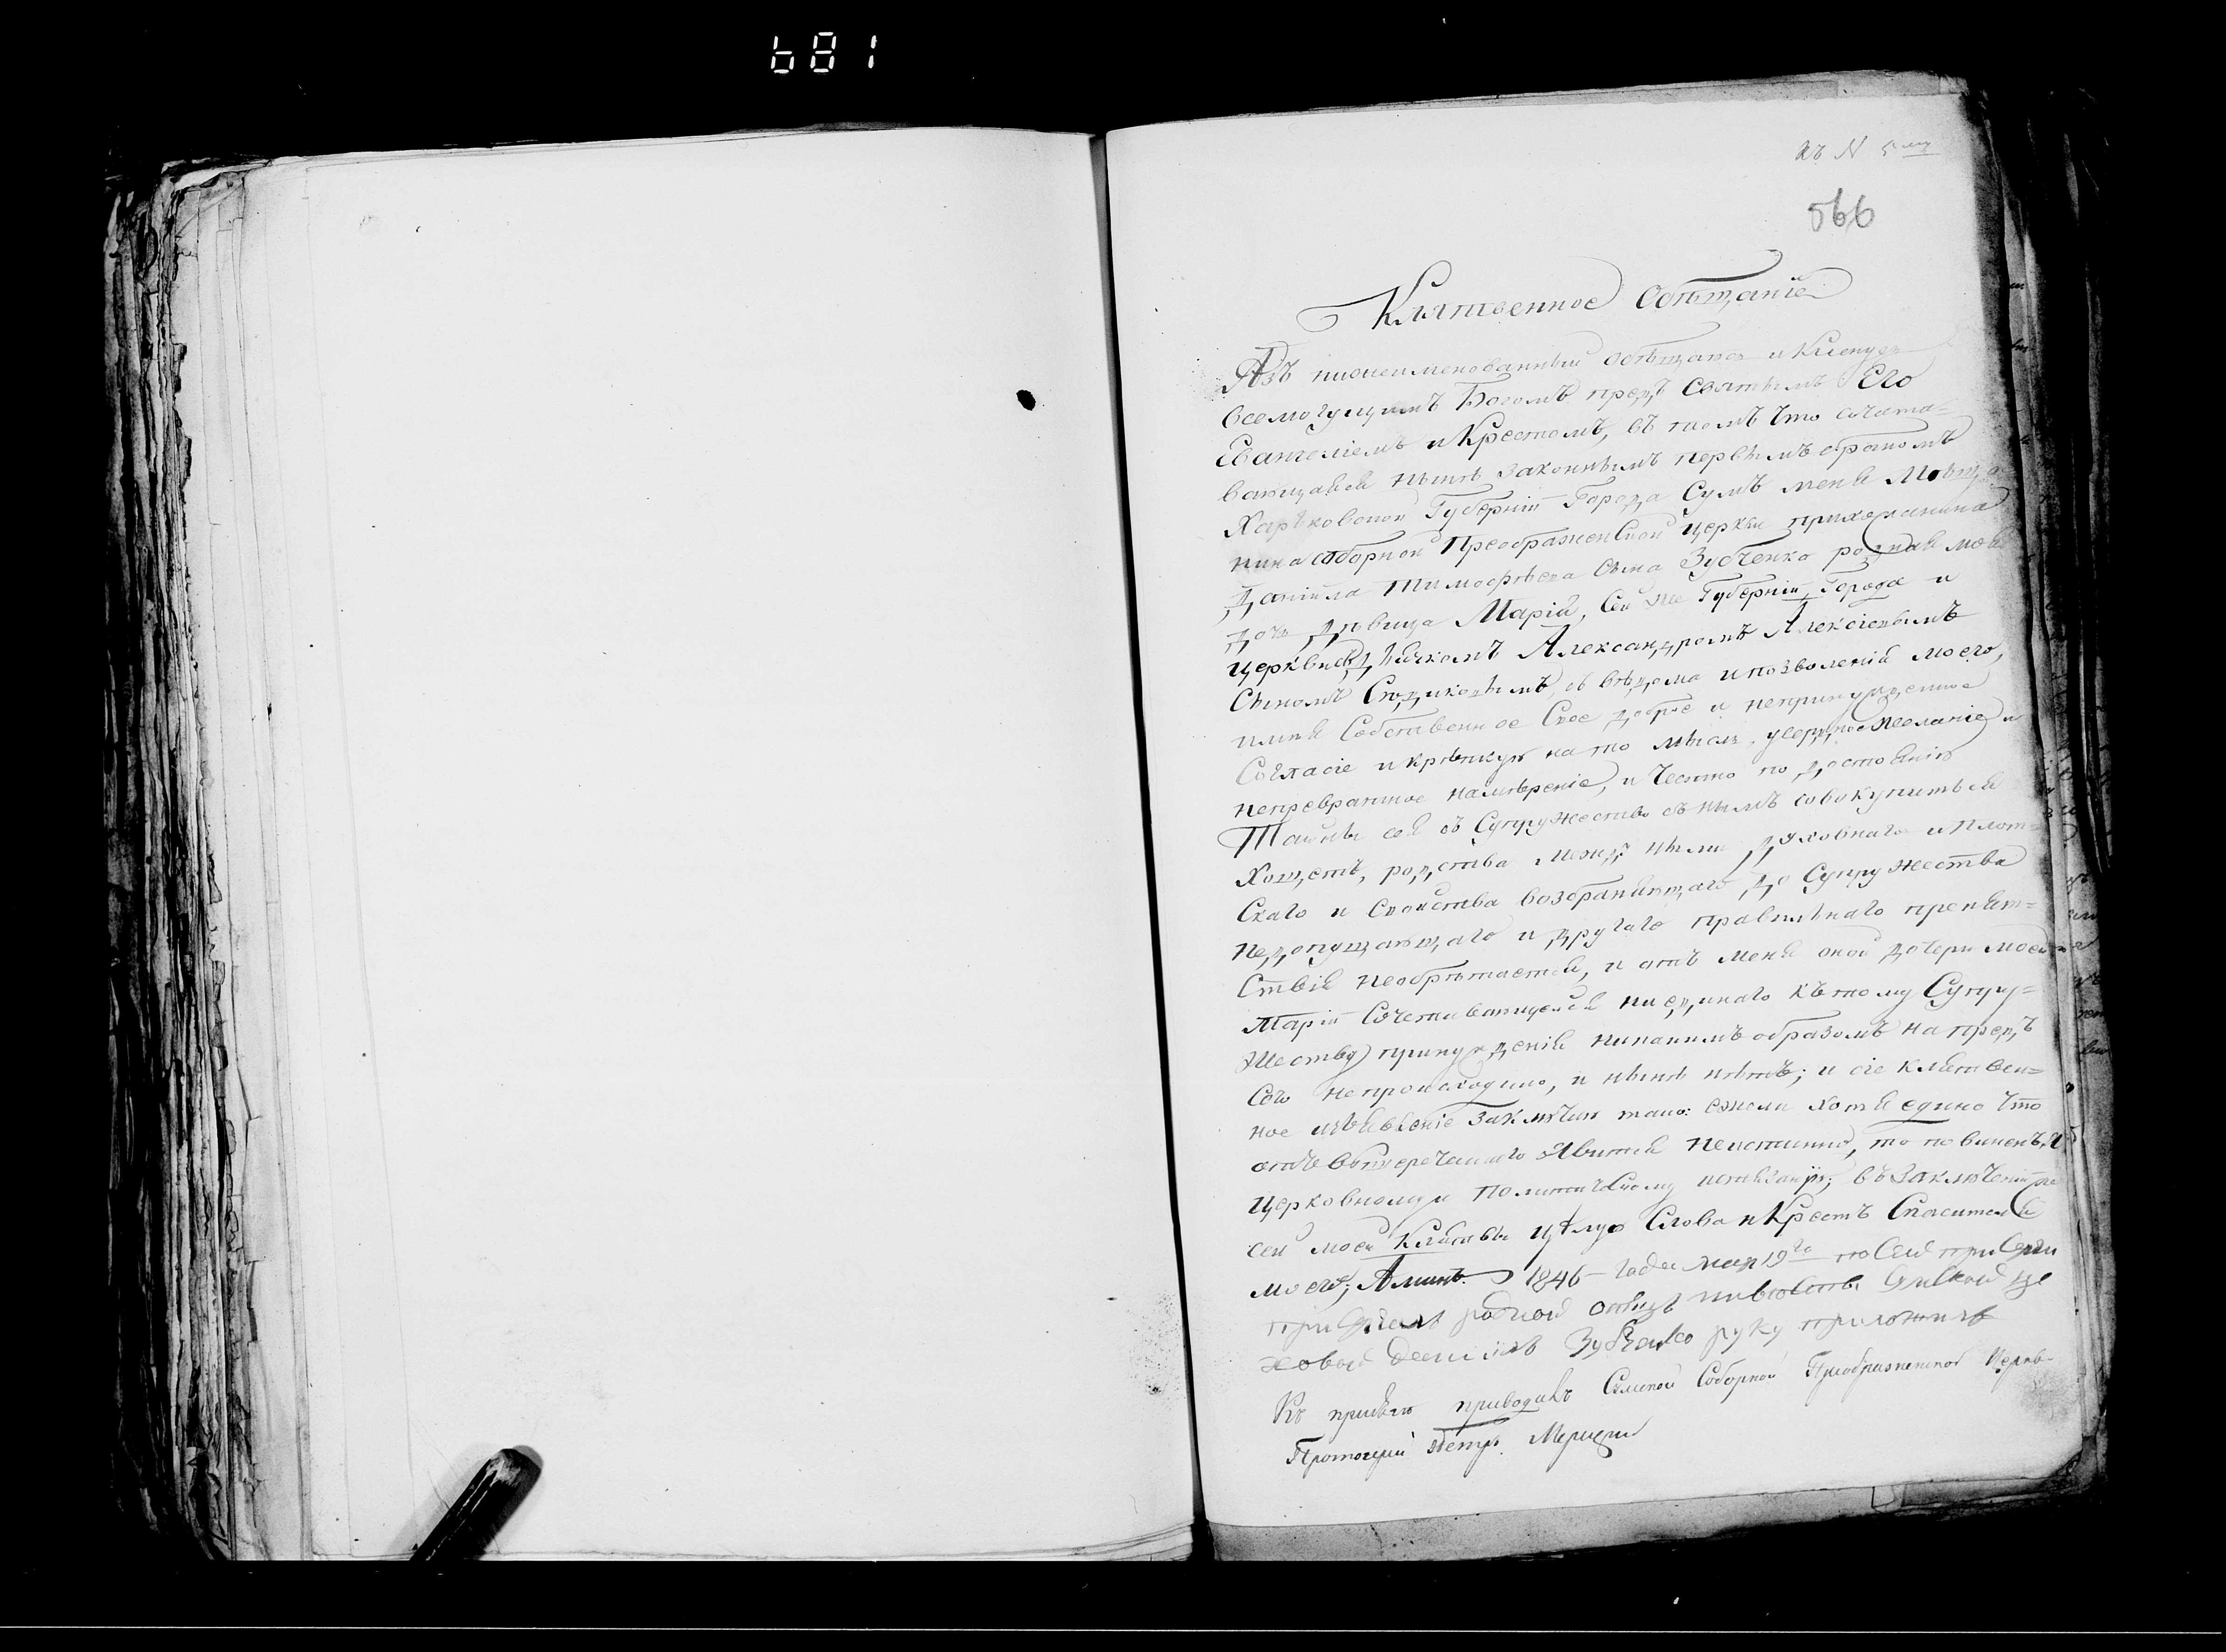 681
Къ N 5му
566
Клятвенное Обѣщаніе
Азъ нижеименованный обѣщаюсь и Кленусь
всемогущимъ Богомъ предъ Святымъ Его
Евангеліемъ и Крестомъ, въ томъ что сочета=
вающаяся нынѣ законнымъ первымъ бракомъ
Харьковской Губерніи Города Сумъ меня Мѣща-
нина соборной Преображенской церкви прихожанина
Даніила Тимофѣева сына Зубченко родная моя
дочь Дѣвица Марія, Сей же Губерніи Города и
церкви съ Дьячкомъ Александромъ Алексіевымъ
Сыномъ съ вѣдома и позволенія моего,
имѣя Собственное Свое доброе и непринужденное
Согласіе и крѣпкую на то мысль, усердное желаніе и
непревратное намѣреніе, и честно по достоянію
Тайны сея въ Супружество съ нымъ совокупиться
Хощетъ, родства между ними духовнаго и плот=
скаго и свойства возбраняющаго до Супружества
недопущающаго и другаго правильнаго препят=
ствія необрѣтается, и отъ меня оной дочери моей
Маріи Сочетавающейся ни единаго къ тому Супру=
жеству принужденія никакимъ образомъ напредъ
сего непроисходило, и нынѣ нѣтъ; и сіе клятвен=
ное изъявленіе Заключаю тако: ежели хотя едино что
отъ вышеречениаго Явится неистинно, то повиненъ я
церковному и политическому истязанію; въ Заключеніи же
сей моей Клятвы цѣлую Слова и Крестъ Спасителя
моего; Аминь. 1846 года мая 19го по Сей присяги
родной отецъ
Зубченко руку приложилъ
Къ присягѣ приводилъ Сумской Соборной Преображенской Церкви
Протоіерей Петръ